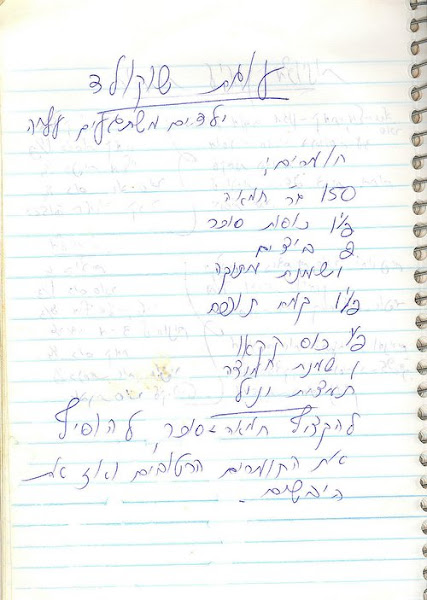 עוגת שוקולד
ילדים משתגעים עליה
חומרים:
150 גר חמאה
1½ כוסות סוכר
2 ביצים
1 שמנת מתוקה
1½ קמח תופח
½ כוס קקאו
1 שמנת חמוצה
תמצית וניל
להקציף חמאה + סוכר, להוסיף
את החומרים הרטובים ואז את
היבשים.